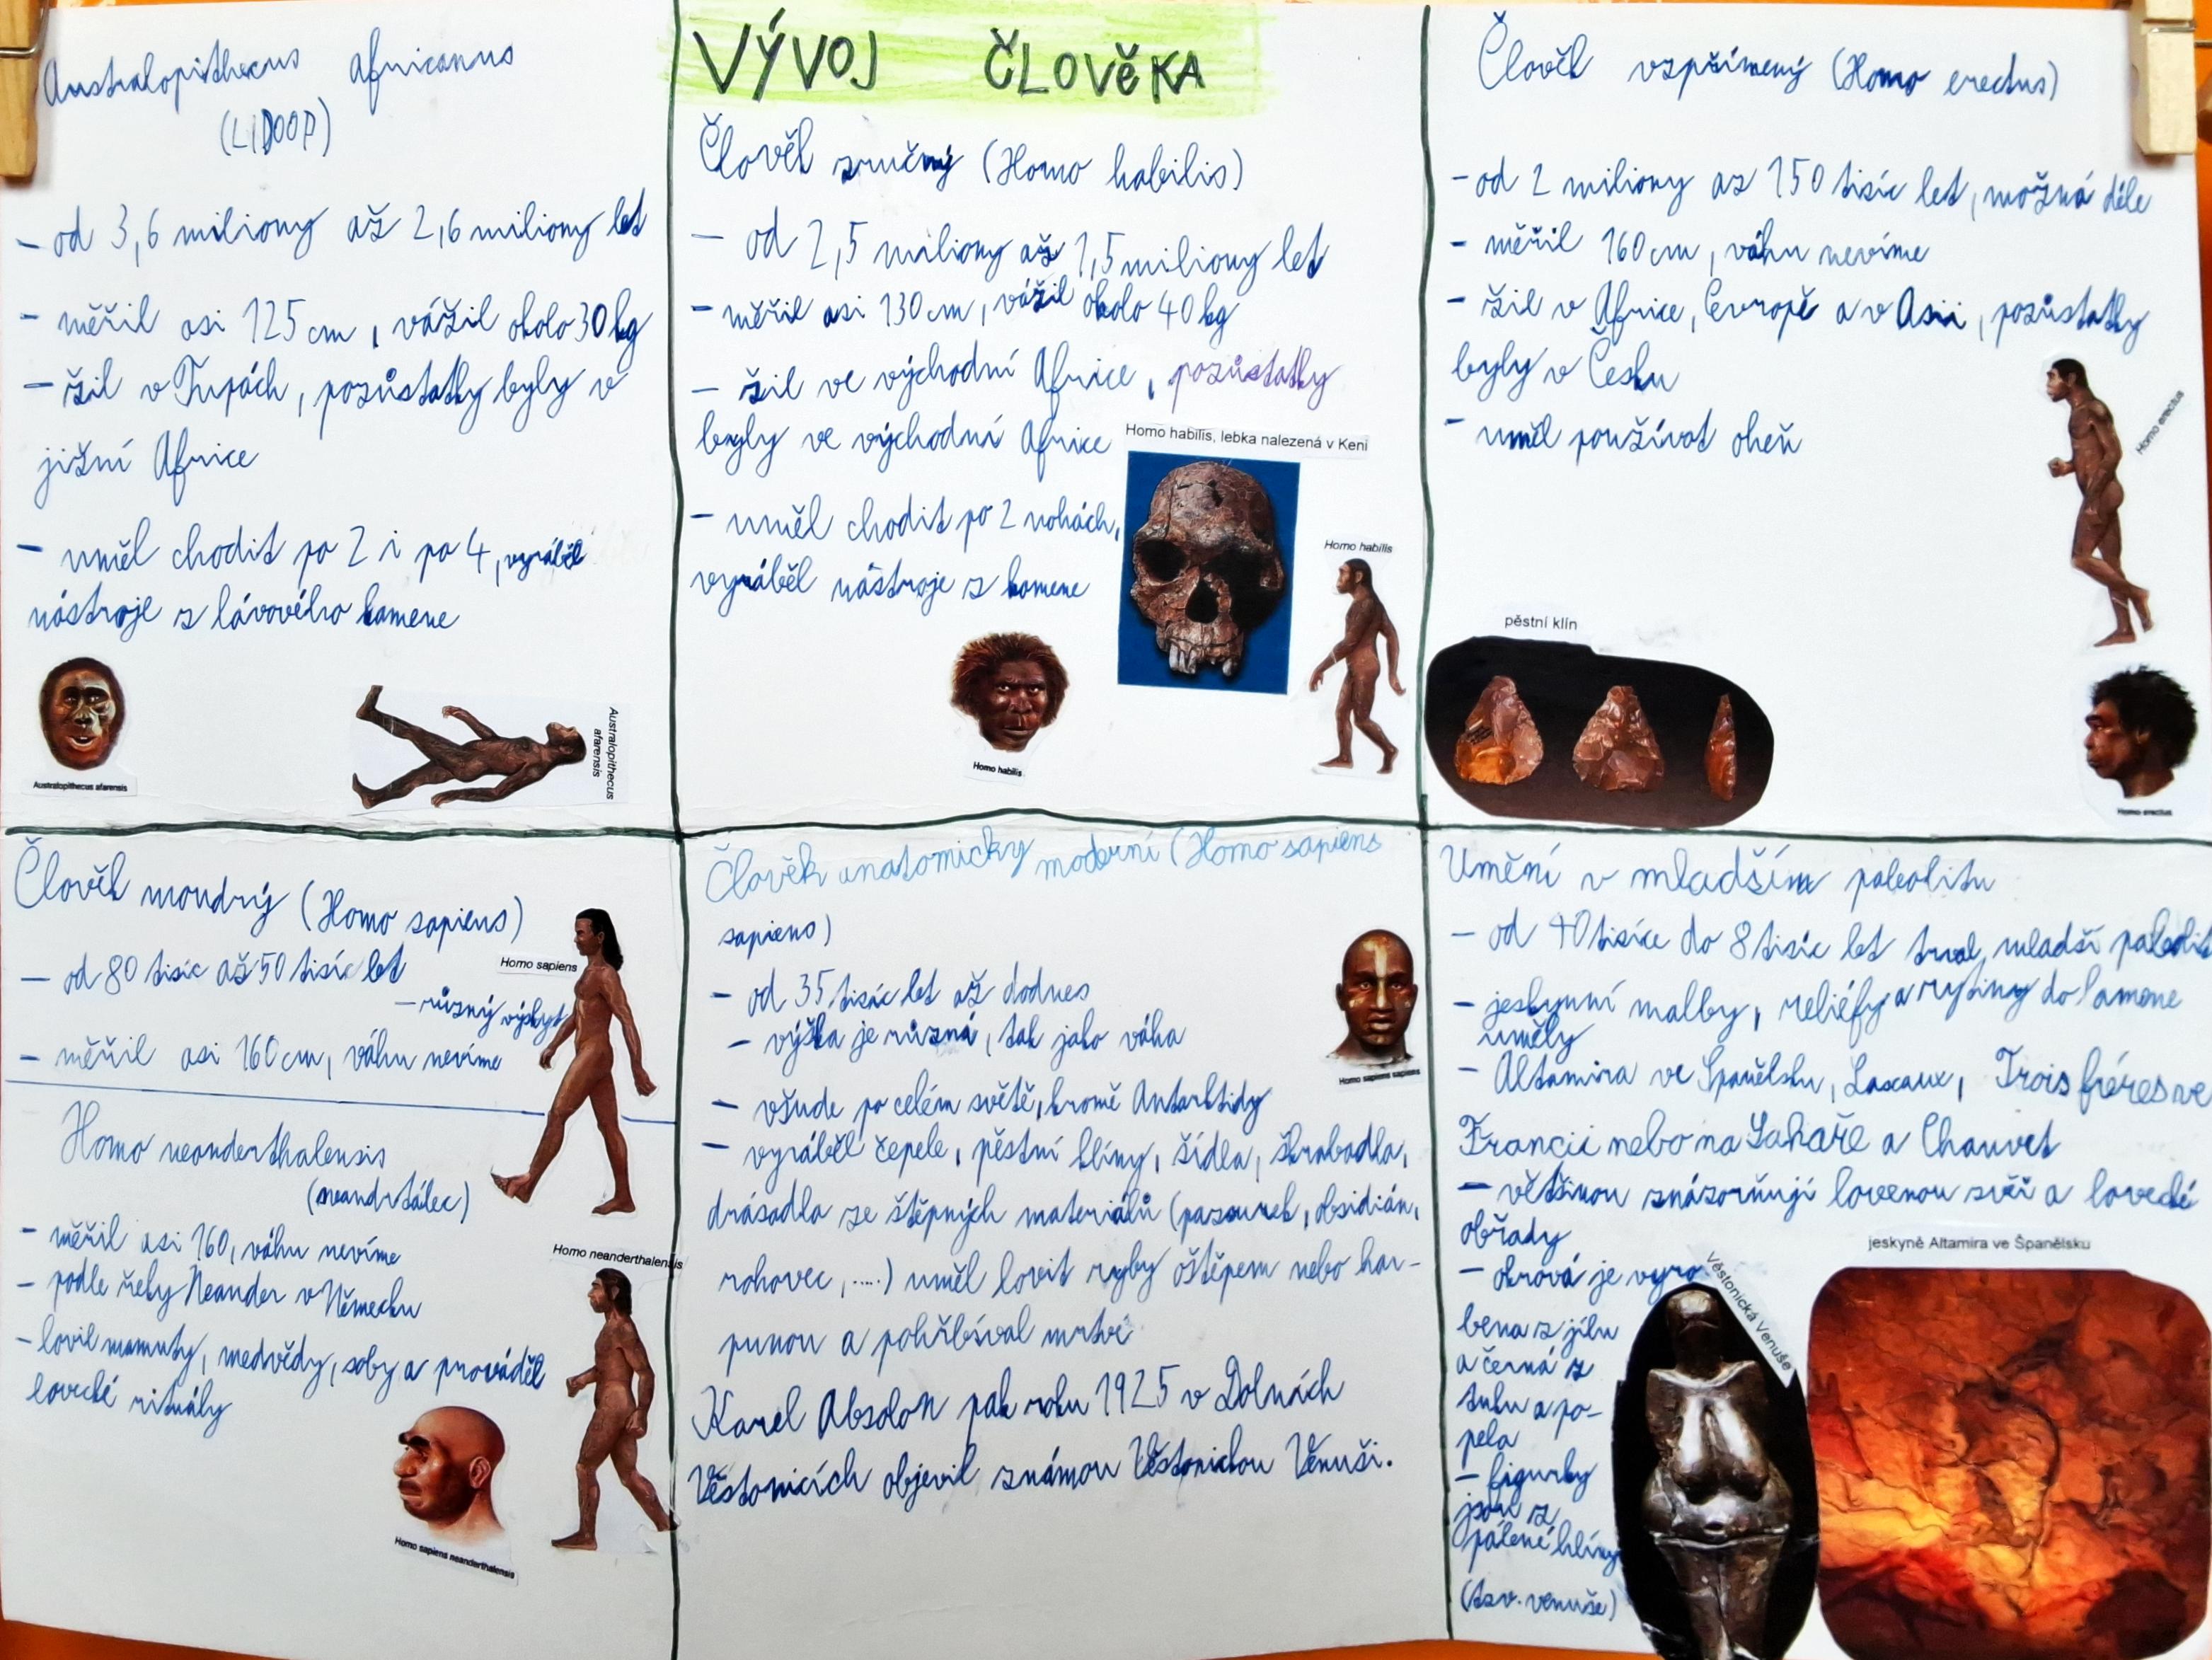 Australopithecus africanus
(LIDOOP)
- od 3,6 miliony až 2,6 miliony let
- měřil asi 125 cm, vážil okolo 30 kg
- žil v Tupách, pozůstatky byly v
jižní Africe
- uměl chodit po 2 i po 4, vyráběl
nástroje z lávového kamene
Australopithecus afarensis
Australopithecus
afarensis
VÝVOJ ČLOVĚKA
Člověk zručný (Homo habilis)
- od 2,5 miliony až 1,5 miliony let
- měřil asi 130 cm, vážil okolo 40 kg
- žil ve východní Africe, pozůstatky
byly ve východní Africe
Homo habilis, lebka nalezená v Keni
- uměl chodit po 2 nohách,
vyráběl nástroje z kamene
Homo habilis
Homo habilis
Člověk vzpřímený (Homo erectus)
- od 2 miliony az 150 tisíc let, možná déle
- měřil 160 cm, váhu nevíme
- žil v Africe, Evropě a v Asii, pozůstatky
byly v Česku
- uměl používat oheň
Homo erectus
pěstní klín
Homo erectus
Člověk moudrý (Homo sapiens)
- od 80 tisíc až 50 tisíc let
- různý výskyt
- měřil asi 160 cm, váhu nevíme
Homo sapiens
Homo neanderthalensis
(neandrtálec)
- měřil asi 160, váhu nevíme
- podle řeky Neander v Německu
- lovil mamuty, medvědy, soby a prováděl
lovecké rituály
Homo neanderthalensis
Homo sapiens neanderthalensis
Člověk anatomicky moderní (Homo sapiens
sapiens)
- od 35 tisíc let až dodnes
- výška je různá, tak jako váha
- všude po celém světě, kromě Antarktidy
- vyráběl čepele, pěstní klíny, šídla, škrabadla,
drásadla ze štěpných materiálů (pazourek, obsidián,
rohovec, .....) uměl lovit ryby oštěpem nebo har-
punou a pohřbíval mrtvé
Karel Absolon pak roku 1925 v Dolních
Věstonicích objevil známou Věstonickou Venuši.
Homo sapiens sapiens
Umění v mladším paleolitu
- od 40 tisíce do 8 tisíc let trval mladší paleolit
- jeskynní malby, reliéfy a rytiny do kamene
uměly
- Altamira ve Španělsku, Lascaux, Trois fréres ve
Francii nebo na Sahaře a Chauvet
- většinou znázorňují lovenou zvěř a lovecké
obřady
- okrová je vyro
bena z jílu
a černá z
tuku a po-
pela
- figurky
jsou z
pálené hlíny
(tzv. venuše)
Věstonická Venuše
jeskyně Altamira ve Španělsku